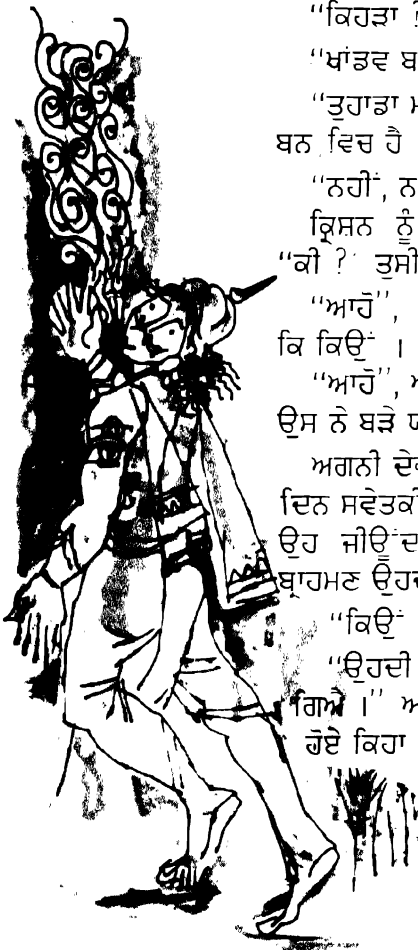 "ਕਿਹੜਾ
"ਖਾਂਡਵ ਬ
"ਤੁਹਾਡਾ
ਬਨ ਵਿਚ ਹੈ
"ਨਹੀਂ, ਨ
ਕ੍ਰਿਸ਼ਨ ਨੂੰ
"ਕੀ ? ਤੁਸੀ
"ਆਹੋ",
ਕਿ ਕਿਉਂ ।
"ਆਹੋ", ਅ
ਉਸ ਨੇ ਬੜੇ ਯ
ਅਗਨੀ ਦੇ
ਦਿਨ ਸਵੇਤਕੀ
ਉਹ ਜੀਊਂਦ
ਬ੍ਰਾਹਮਣ ਉਹਦ
"ਕਿਉਂ
"ਉਹਦੀ
ਗਿਐ ।" ਅ
ਹੋਏ ਕਿਹਾ